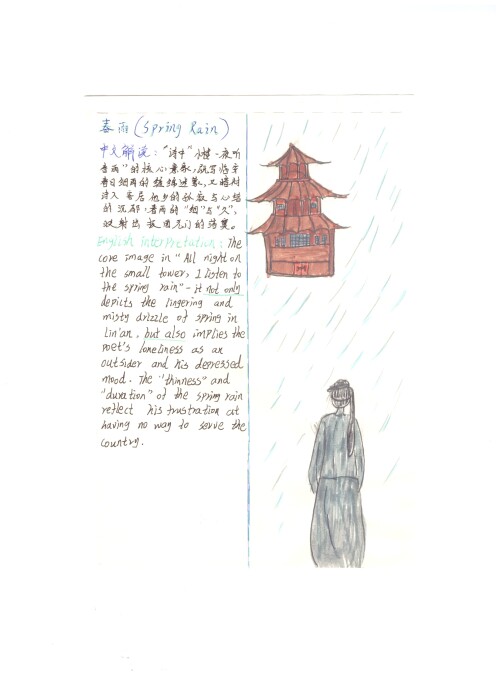 春雨 (Spring Rain)
中文解读："诗中"小楼一夜听
春雨"的核心意象，既写临安
春日细雨的缠绵迷蒙，又暗
诗人 客居他乡的孤寂与心绪
的沉郁，春雨的"细"与"久"，
映射出 报国无门的落寞。
English interpretation: The
core image in "All night on
the small tower, I listen to
the spring rain" - It not only
depicts the lingering and
misty drizzle of spring in
Lin'an, but also implies the
poet's loneliness as an
outsider and his depressed
mood. The "thinness" and
"duration" of the spring rain
reflect his frustration at
having no way to serve the
country.